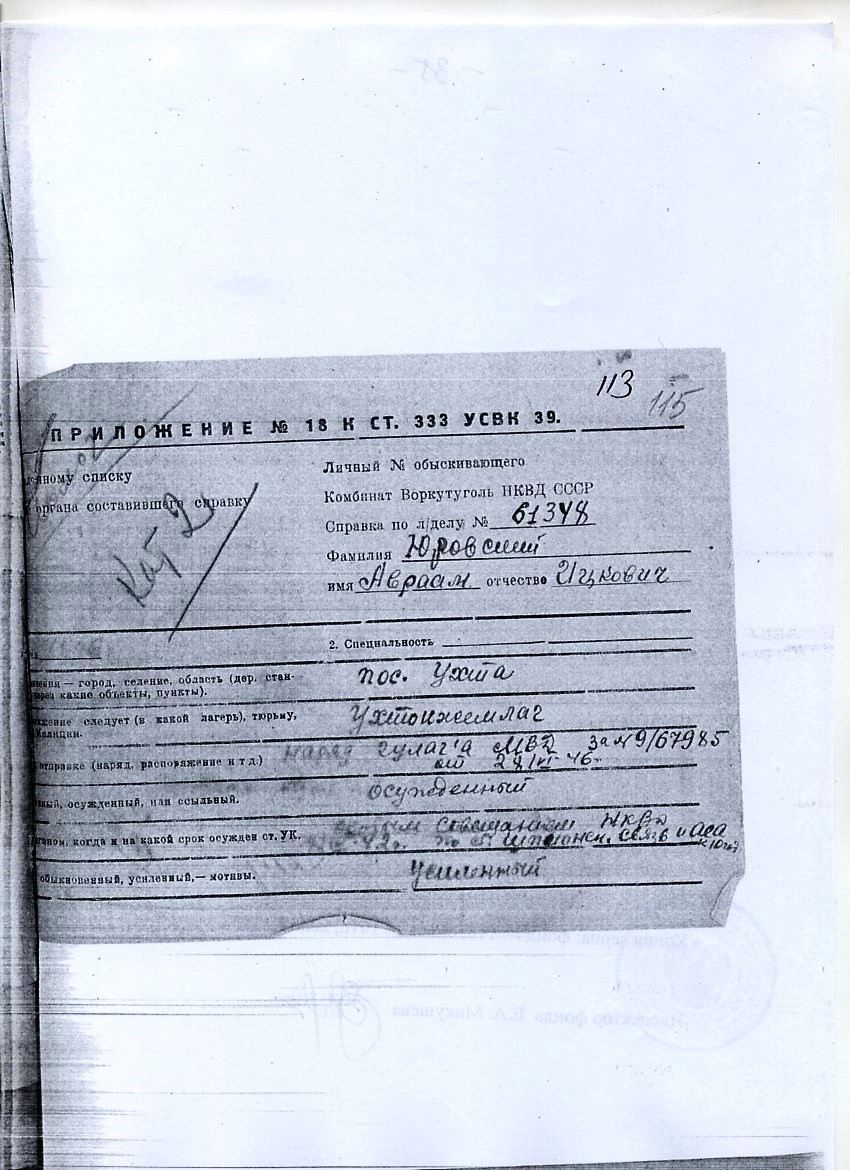 113
115
ПРИЛОЖЕНИЕ № 18 К СТ. 333 УСВК 39.
нному списку
органа составившего справку
Кат 2
Личный № обыскивающего
Комбинат Воркутуголь НКВД СССР
Справка по л/делу № 61348
Фамилия Юровский
имя Авраам отчество Ицкович
2. Специальность
ения — город, селение, область (дер. стан-
рез какие объекты, пункты).
пос. Ухта
жение следует (в какой лагерь), тюрьму,
милиции.
Ухтокжемлаг
отправке (наряд, распоряжение и т д.)
наряд гулаг'а МВД за № 9/67985
от 28/VI-46.
ный, осужденный, или ссыльный.
осужденный
рганом, когда и на какой срок осужден ст. УК.
совещанием НКВД
42г. по ст. шпионск. связ и аса
к 10
обыкновенный, усиленный,— мотивы.
усиленный
Копия верна: фонд
Инспектор фонда Е.А. Микушева
-35-